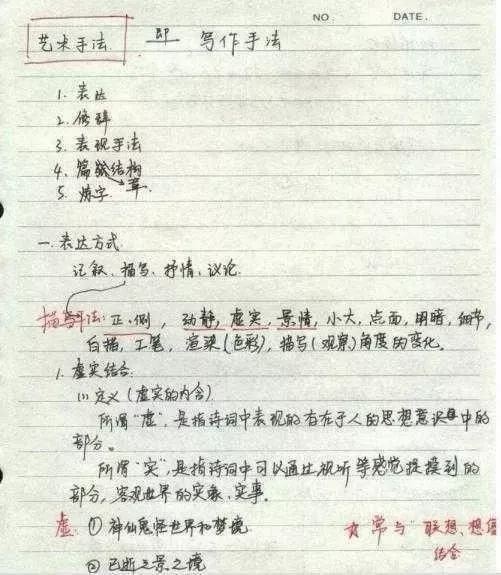 NO.    DATE.
艺术手法 即 写作手法
1. 表达
2. 修辞
3. 表现手法
4. 篇章结构
5. 炼字
一. 表达方式
记叙、描写、抒情、议论.
描写手法: 正、侧, 动静, 虚实, 景情, 小大, 点面, 明暗, 细节,
白描, 工笔, 渲染(色彩), 描写(观察)角度的变化.
1. 虚实结合:
(1) 定义(虚实的内含)
所谓“虚”, 是指诗词中表现的存在于人的思想意识中的
部分。
所谓“实”, 是指诗词中可以通过视听等感觉捉摸到的
部分, 客观世界的实象、实事。
虚: ① 神仙鬼怪世界和梦境
常与“联想、想像
结合
② 已逝之景之境